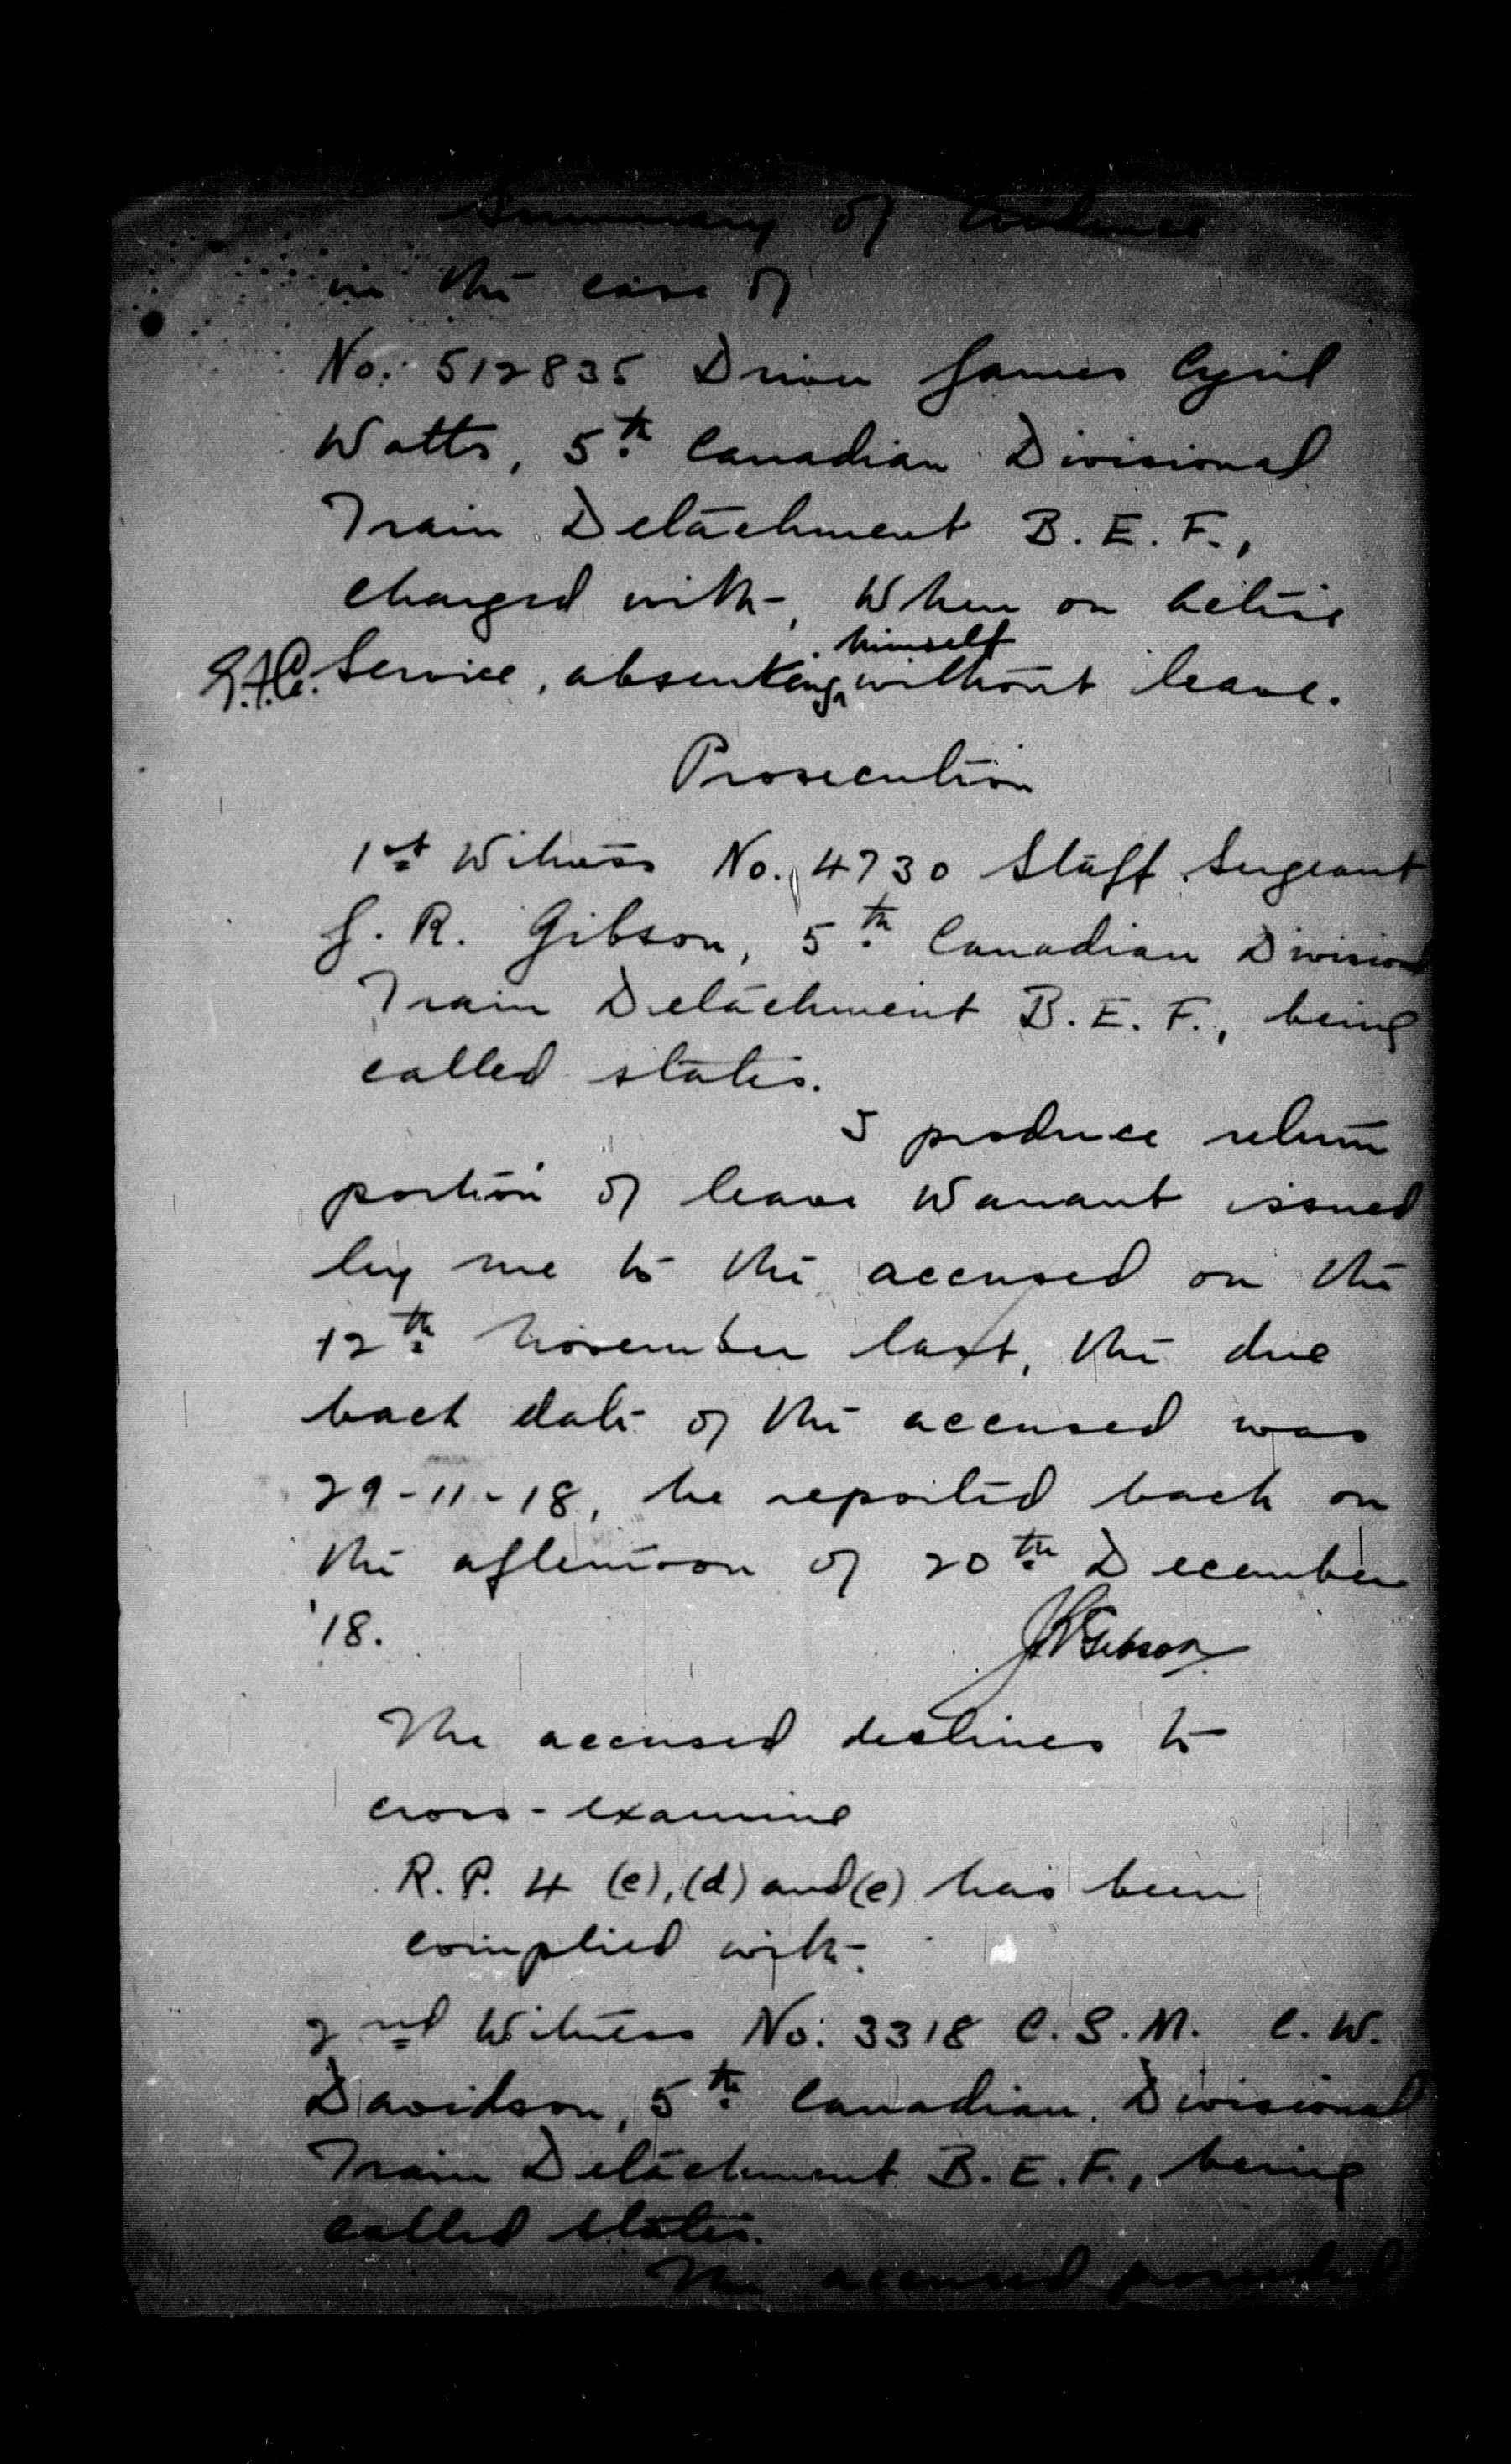 Summary of Evidence
in the case of
No. 512835 Driver James Cyril
Watts, 5th Canadian Divisional
Train Detachment B.E.F.,
charged with, When on active
himself
Service, absenting without leave.
Prosecution
1st Witness No. 4730 Staff Sergeant
J. R. Gibson, 5th Canadian Divisional
Train Detachment B.E.F., being
called states.
I produce return
portion of leave Warrant issued
by me to the accused on the
12th November last, the due
back date of the accused was
29-11-18, he reported back on
the afternoon of 20th December
'18.
JRGibson
The accused declines to
cross-examine
R.P. 4 (c), (d) and (e) has been
complied with.
2nd Witness No: 3318 C.S.M. C.W.
Davidson, 5th Canadian Divisional
Train Detachment B.E.F., being
called states.
The accused proceeded